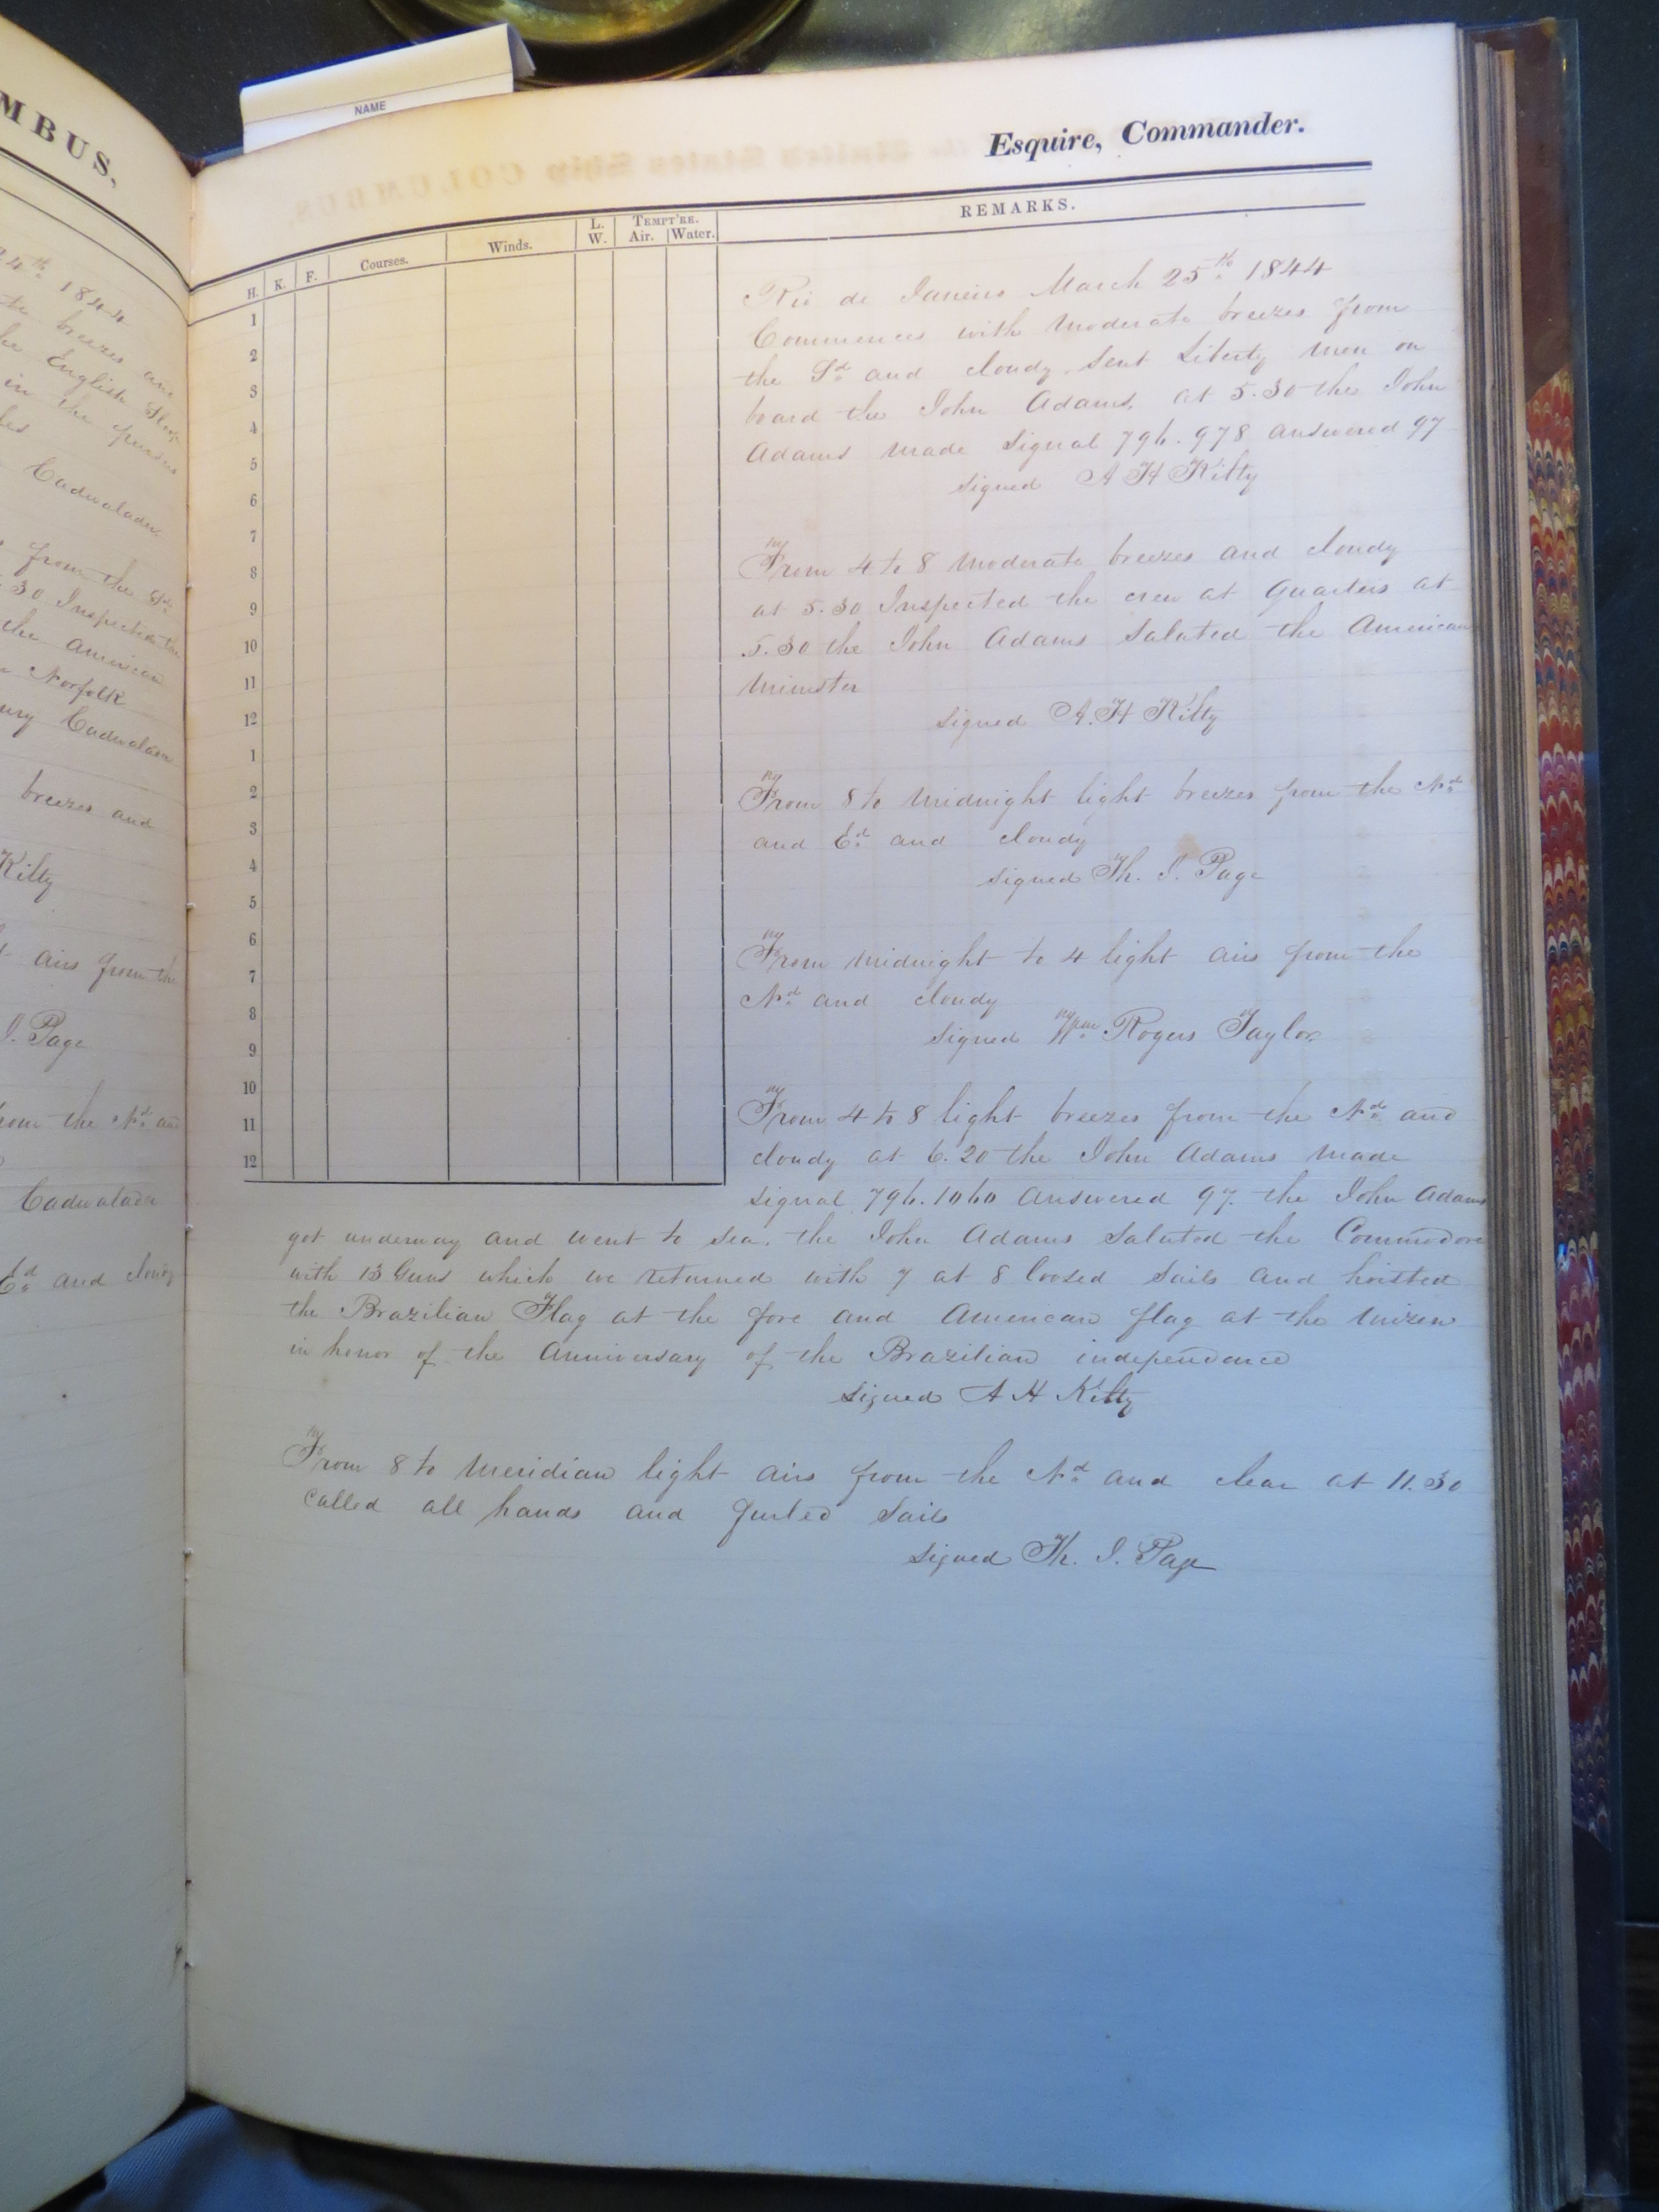 MBUS,
24th 1844
te breezes and
he English Sloop
in the
les
Cadwalader
from the Sd
30 Inspected the
the American
Norfolk
ry Cadwalader
breezes and
Kilty
airs from the
I. Page
from the Nd and
Cadwalader
Ed and cloudy
NAME
Esquire, Commander.
H. K. F. Courses. Winds. L. W. TEMPT'RE. Air. Water. REMARKS.
1
2
3
4
5
6
7
8
9
10
11
12
1
2
3
4
5
6
7
8
9
10
11
12
Rio de Janeiro March 25th 1844
Commences with moderate breezes from
the Sd and cloudy. Sent Liberty men on
board the John Adams. at 5.30 the John
Adams made Signal 796.978 answered 97
Signed A H Kilty
From 4 to 8 moderate breezes and cloudy
at 5.30 Inspected the crew at Quarters at
5.30 the John Adams Saluted the American
Minister
Signed A. H Kilty
From 8 to Midnight light breezes from the Nd
and Ed and cloudy
Signed Th. J. Page
From Midnight to 4 light airs from the
Nd and cloudy
Signed Wm Rogers Taylor
From 4 to 8 light breezes from the Nd and
cloudy at 6.20 the John Adams made
Signal 796.1060 answered 97. the John Adams
got underway and went to Sea. the John Adams Saluted the Commodore
with 13 Guns which we returned with 7 at 8 loosed Sails and hoisted
the Brazilian Flag at the fore and American flag at the mizen
in honor of the Anniversary of the Brazilian independence
Signed A H Kilty
From 8 to Meridian light airs from the Nd and clear at 11.30
Called all hands and furled Sails
Signed Th. J. Page